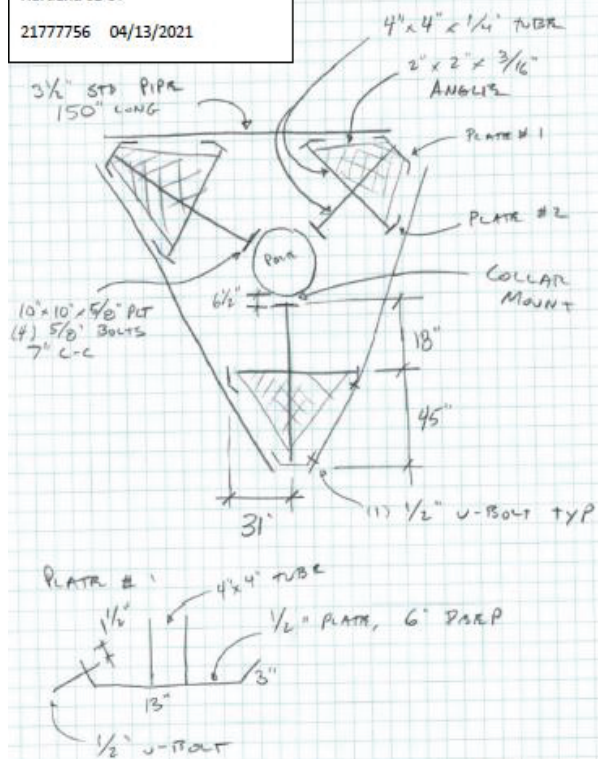 21777756 04/13/2021
4" x 4" x 1/4" TUBE
3 1/2" STD PIPE
150" LONG
2" x 2" x 3/16"
ANGLE
PLATE # 1
PLATE #2
COLLAR
MOUNT
6 1/2"
10" x 10" x 5/8" PLT
(4) 5/8" BOLTS
7" C-C
18"
45"
31"
(1) 1/2" U-BOLT TYP
PLATE # 1
4" x 4" TUBE
1 1/2"
1/2" PLATE, 6" DEEP
3"
13"
1/2" U-BOLT